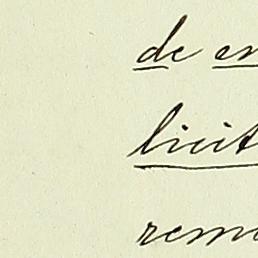 de en
licit
remo